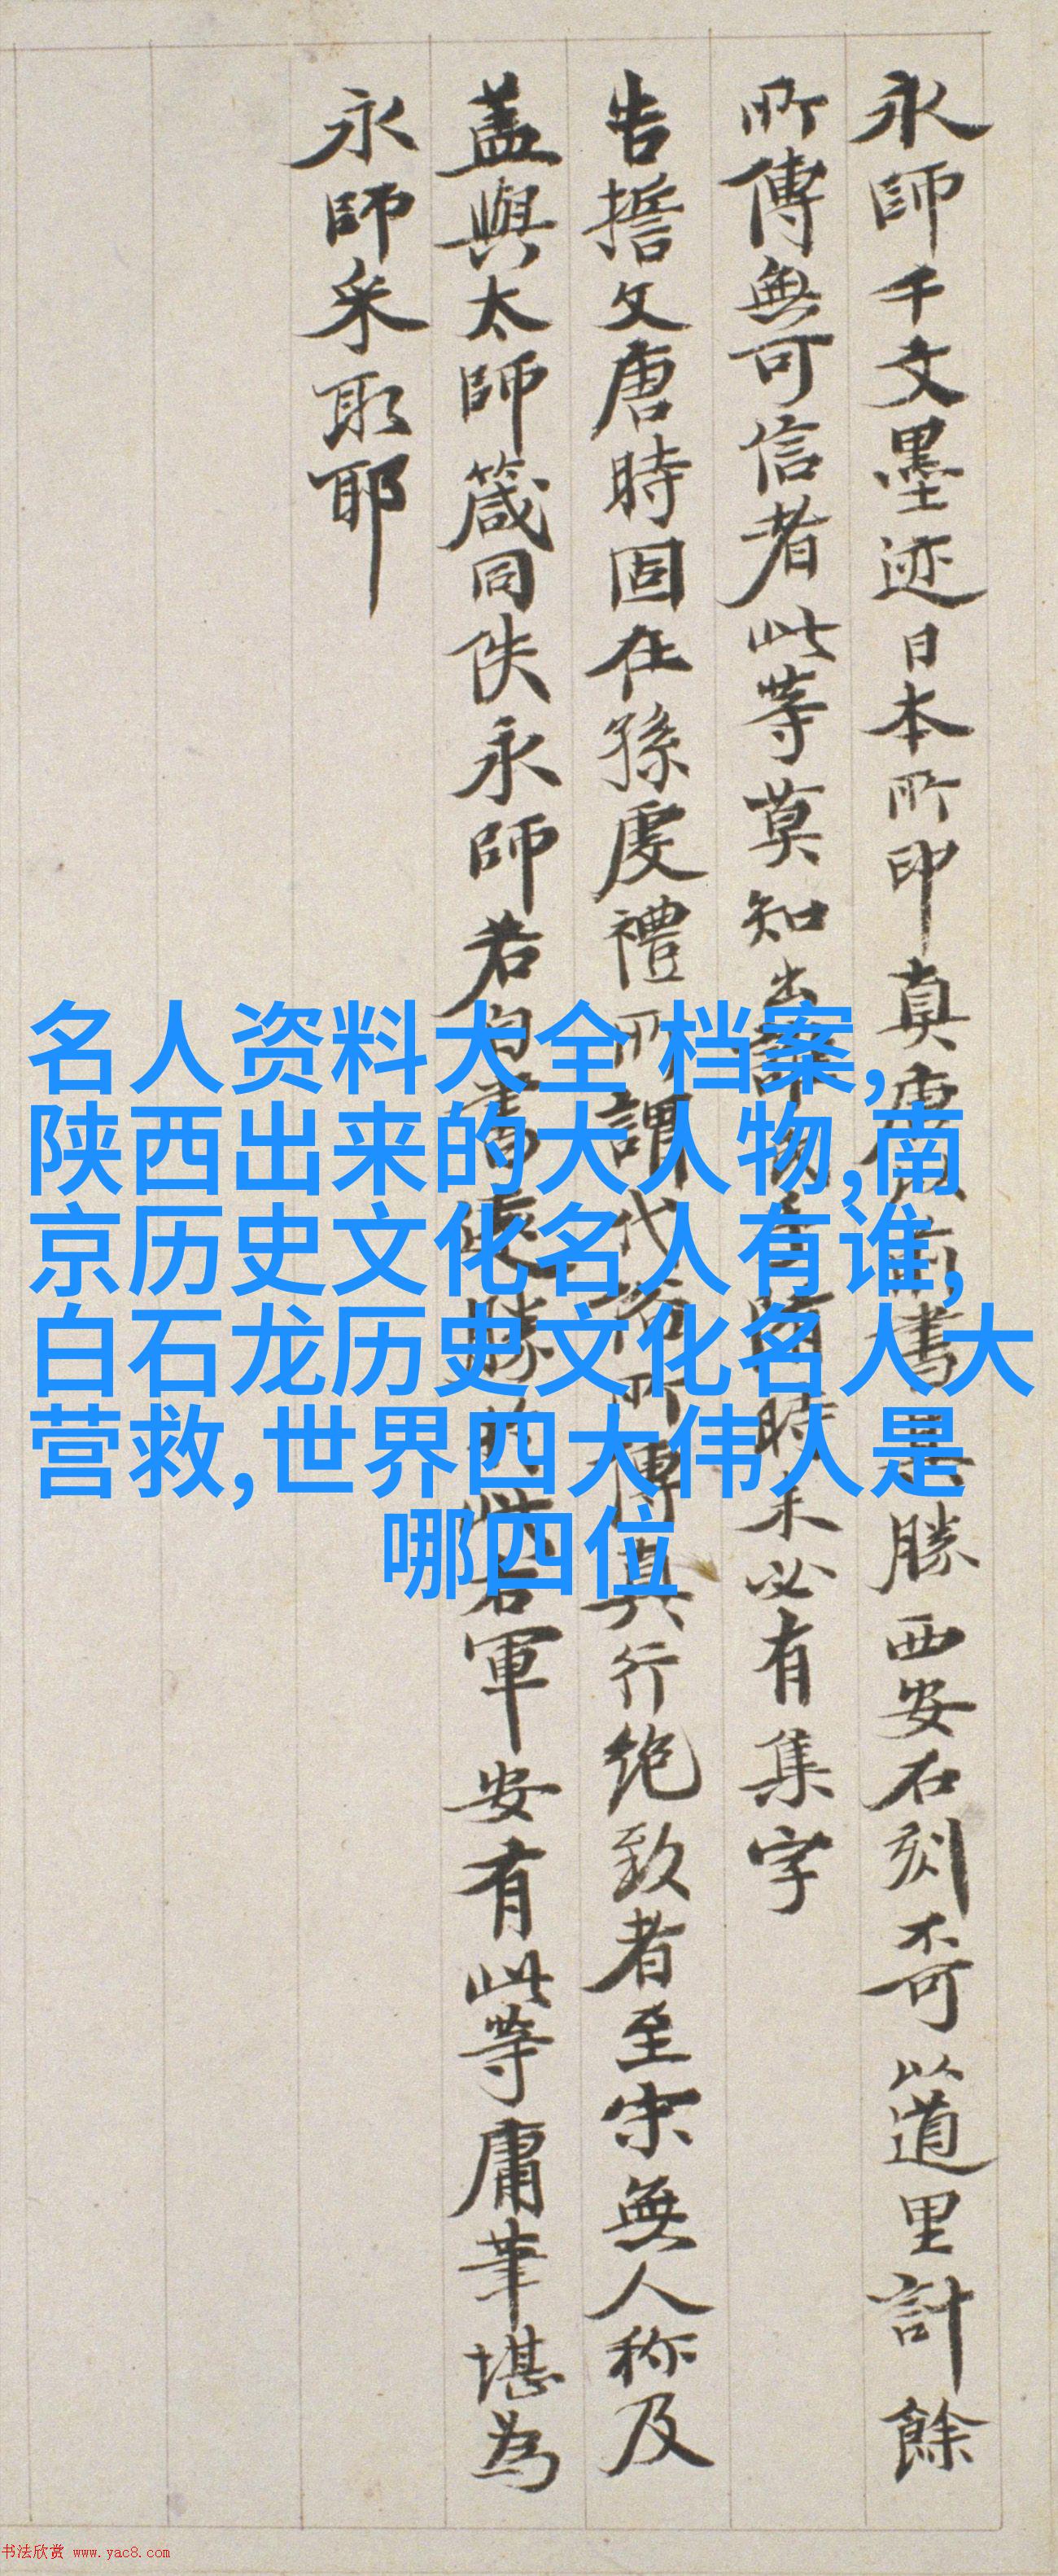 永師千文墨迹日本所印真唐書勝西安石刻不可以道里計餘
所傳無可信者此等莫知出時未必有集字
告誓文唐時固在孫虔禮所謂代所傳真行绝致者至宋無人称及
盖與太師箴同佚永師若書右軍安有此等庸筆堪為
永師采取耶
名人资料大全 档案,
陕西出来的大人物,南
京历史文化名人有谁,
白石龙历史文化名人大
营救,世界四大伟人是
哪四位
书法欣赏 www.yac8.com